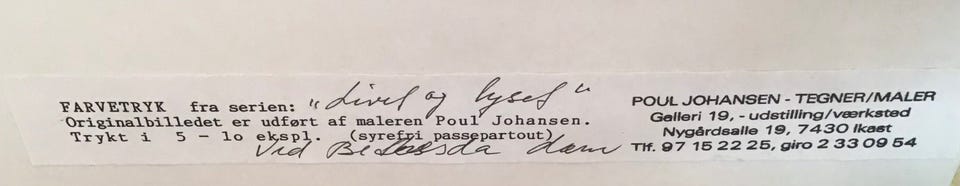 FARVETRYK fra serien: "Livet og lyset"
Originalbilledet er udført af maleren Poul Johansen.
Trykt i 5 - lo ekspl. (syrefri passepartout)
Ved Bethesda dam
POUL JOHANSEN - TEGNER/MALER
Galleri 19, - udstilling/værksted
Nygårdsalle 19, 7430 Ikast
Tlf. 97 15 22 25, giro 2 33 09 54